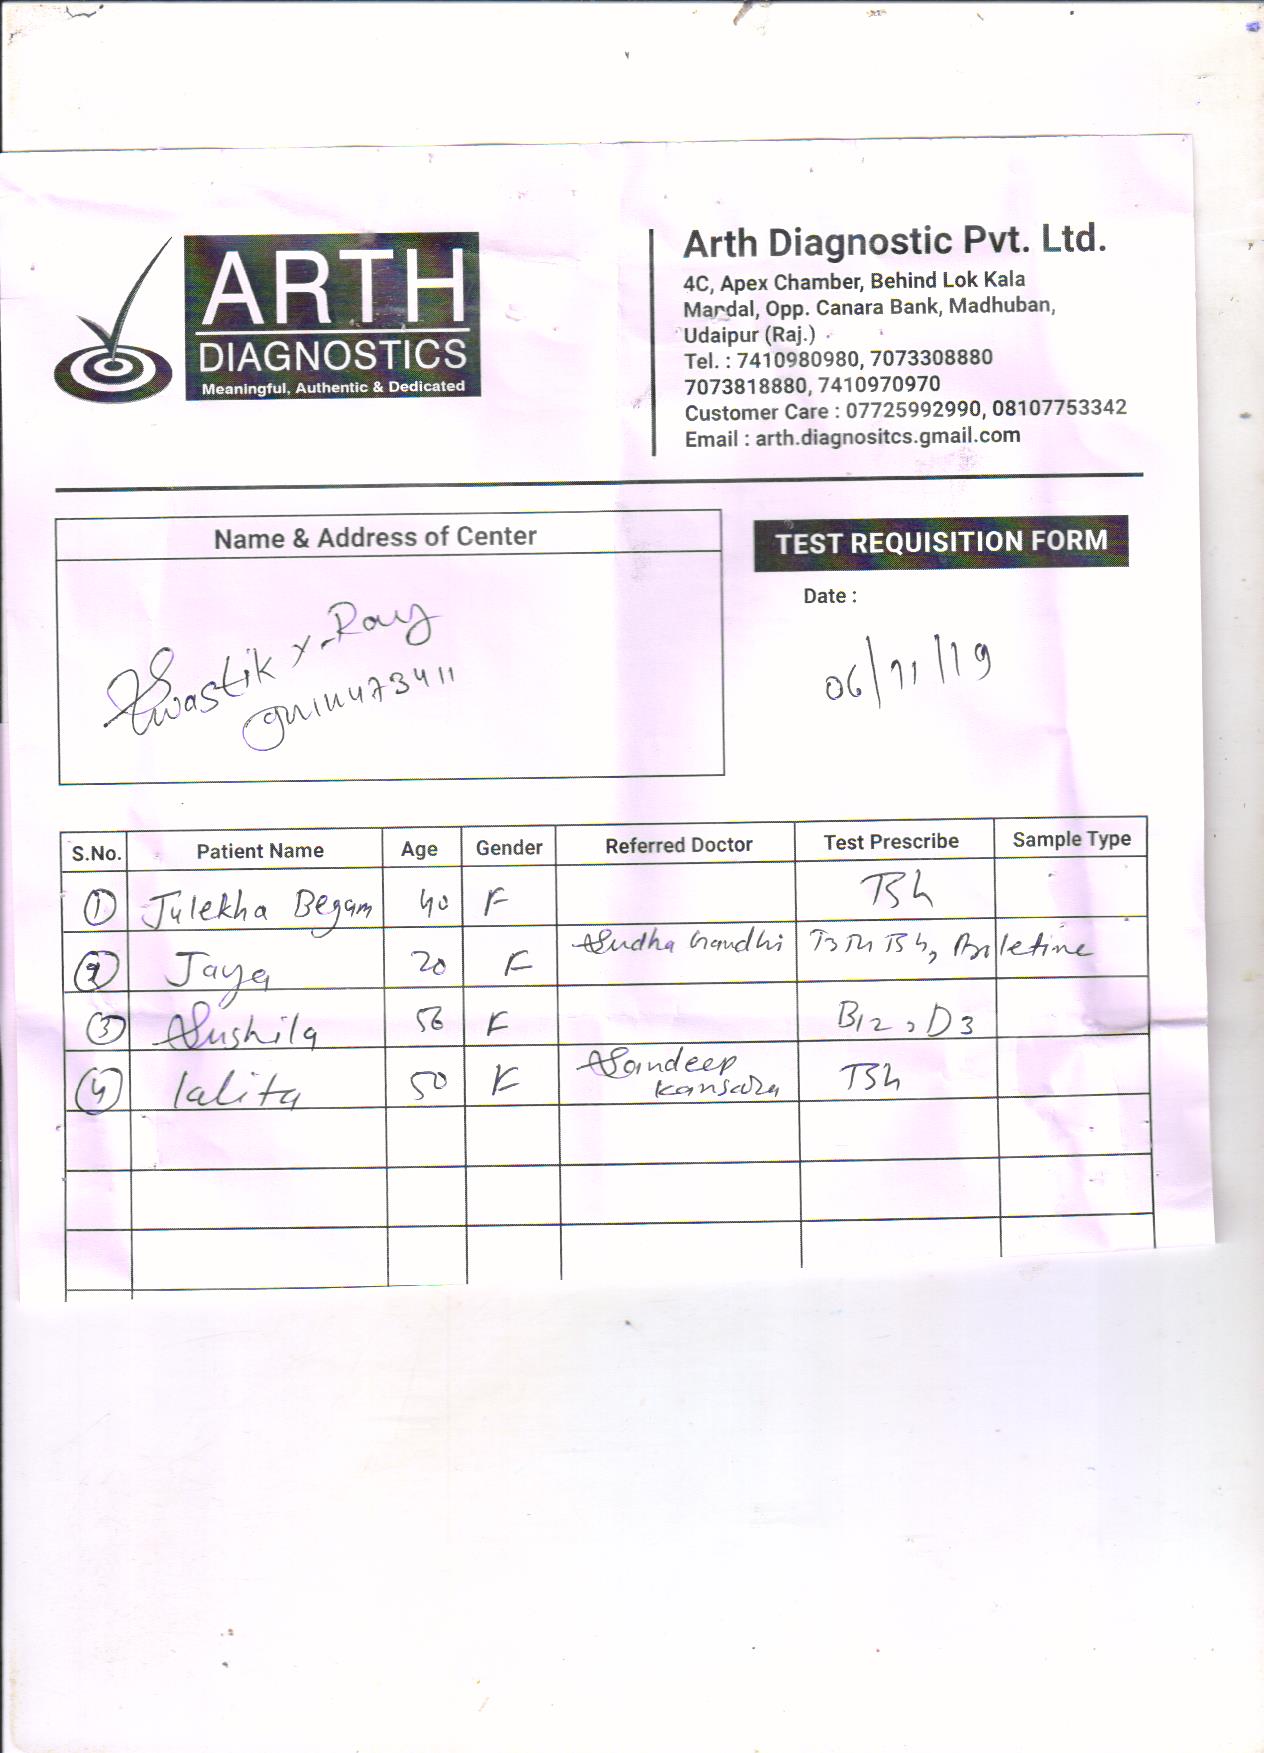 ARTH
DIAGNOSTICS
Meaningful, Authentic & Dedicated
Arth Diagnostic Pvt. Ltd.
4C, Apex Chamber, Behind Lok Kala
Mandal, Opp. Canara Bank, Madhuban,
Udaipur (Raj.)
Tel. : 7410980980, 7073308880
7073818880, 7410970970
Customer Care : 07725992990, 08107753342
Email : arth.diagnositcs.gmail.com
Name & Address of Center
Swastik X-Ray
TEST REQUISITION FORM
Date :
06/11/19
S.No. Patient Name Age Gender Referred Doctor Test Prescribe Sample Type
1 Julekha Begam 40 F TSh
2 Jaya 20 F Sudha Gandhi T3 T4 TSh,
3 Sushila 56 F B12, D3
4 lalita 50 F Sandeep Kansara TSh